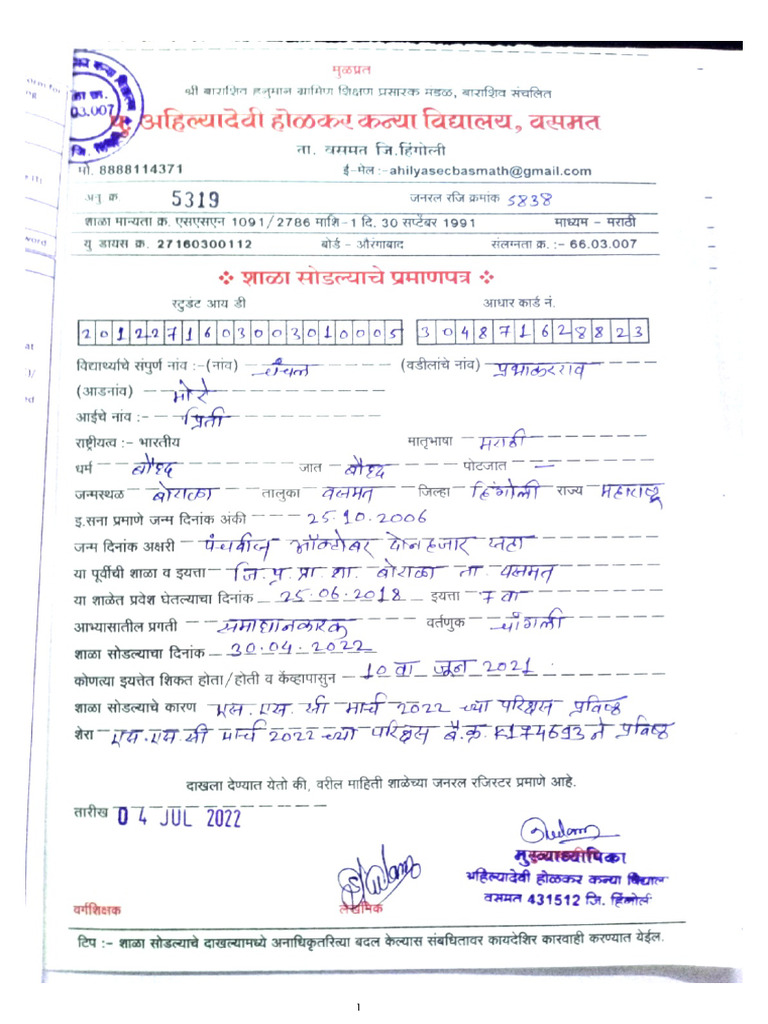 मुळप्रत
श्री बाराशिव हनुमान ग्रामिण शिक्षण प्रसारक मडळ, बाराशिव संचलित
पु. अहिल्यादेवी होळकर कन्या विद्यालय, वसमत
ता. वसमत जि.हिंगोली
मो. 8888114371 ई-मेल :-ahilyasecbasmath@gmail.com
अनु क्र 5319 जनरल रजि क्रमांक 5838
शाळा मान्यता क्र. एसएसएन 1091/2786 माशि-1 दि. 30 सप्टेंबर 1991 माध्यम - मराठी
यु डायस क्र. 27160300112 बोर्ड - औरंगाबाद संलग्नता क्र. :- 66.03.007
शाळा सोडल्याचे प्रमाणपत्र
स्टुडंट आय डी आधार कार्ड नं.
2012271603003010005 304871628823
विद्यार्थ्याचे संपुर्ण नांव :-(नांव) चंचल (वडीलांचे नांव) प्रभाकरराव
(आडनांव) मोरे
आईचे नांव :- प्रिती
राष्ट्रीयत्व :- भारतीय मातृभाषा मराठी
धर्म बौध्द जात बौध्द पोटजात —
जन्मस्थळ बोराळा तालुका वसमत जिल्हा हिंगोली राज्य महाराष्ट्र
इ.सना प्रमाणे जन्म दिनांक अंकी 25.10.2006
जन्म दिनांक अक्षरी पंचवीस ऑक्टोबर दोनहजार सहा
या पूर्वीची शाळा व इयत्ता जि.प.प्रा.शा. बोराळा ता. वसमत
या शाळेत प्रवेश घेतल्याचा दिनांक 25.06.2018 इयत्ता 7 वी
आभ्यासातील प्रगती समाधानकारक वर्तणुक चांगली
शाळा सोडल्याचा दिनांक 30.04.2022
कोणत्या इयत्तेत शिकत होता/होती व केंव्हापासुन 10 वी जून 2021
शाळा सोडल्याचे कारण एस.एस.सी मार्च 2022 च्या परिक्षेस प्रविष्ठ
शेरा एस.एस.सी मार्च 2022 च्या परिक्षेस बै.क्र. F174693 ने प्रविष्ठ
दाखला देण्यात येतो की, वरील माहिती शाळेच्या जनरल रजिस्टर प्रमाणे आहे.
तारीख 04 JUL 2022
मुख्याध्यापिका
अहिल्यादेवी होळकर कन्या विद्यालय
वसमत 431512 जि. हिंगोली
वर्गशिक्षक लेखनिक
टिप :- शाळा सोडल्याचे दाखल्यामध्ये अनाधिकृतरित्या बदल केल्यास संबधितावर कायदेशिर कारवाही करण्यात येईल.
1